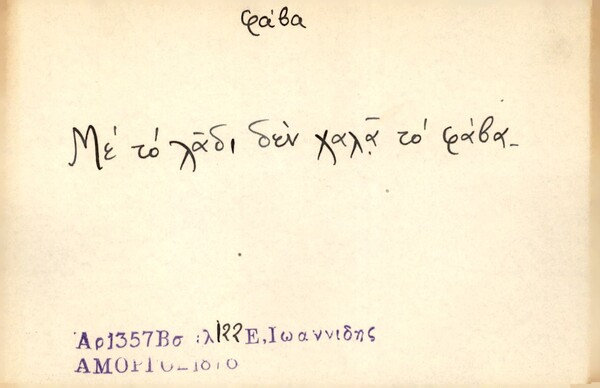 φάβα
Μέ τό λᾶδι δέν χαλᾷ τό φάβα_
Αρ1357Βσ :λ122 Ε,Ιωαννιδης
ΑΜΟΡΓΟΣ 1876